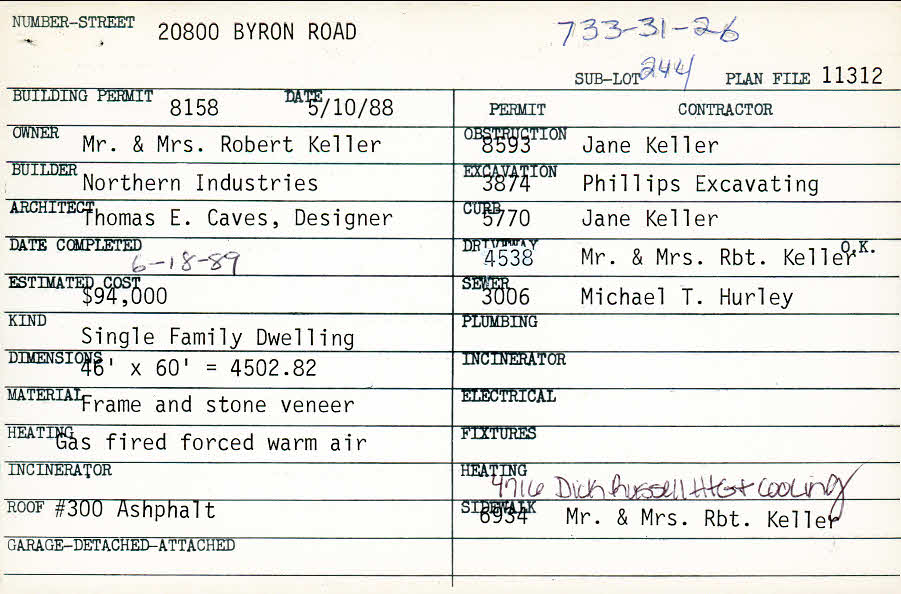 NUMBER-STREET 20800 BYRON ROAD 733-31-26
SUB-LOT 244 PLAN FILE 11312
BUILDING PERMIT 8158 DATE 5/10/88 PERMIT CONTRACTOR
OWNER Mr. & Mrs. Robert Keller OBSTRUCTION 8593 Jane Keller
BUILDER Northern Industries EXCAVATION 3874 Phillips Excavating
ARCHITECT Thomas E. Caves, Designer CURB 5770 Jane Keller
DATE COMPLETED 6-18-89 DRIVEWAY 4538 Mr. & Mrs. Rbt. Keller O.K.
ESTIMATED COST $94,000 SEWER 3006 Michael T. Hurley
KIND Single Family Dwelling PLUMBING
DIMENSIONS 46' x 60' = 4502.82 INCINERATOR
MATERIAL Frame and stone veneer ELECTRICAL
HEATING Gas fired forced warm air FIXTURES
INCINERATOR HEATING 4716 Dick Russell HtG + Cooling
ROOF #300 Ashphalt SIDEWALK 6934 Mr. & Mrs. Rbt. Keller
GARAGE-DETACHED-ATTACHED